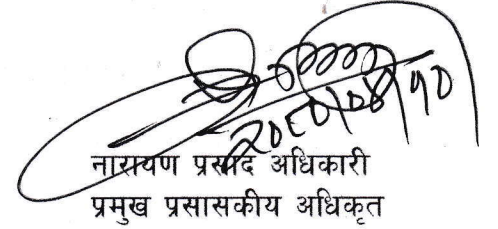 २०८०।०४।१०
नारायण प्रसाद अधिकारी
प्रमुख प्रसासकीय अधिकृत